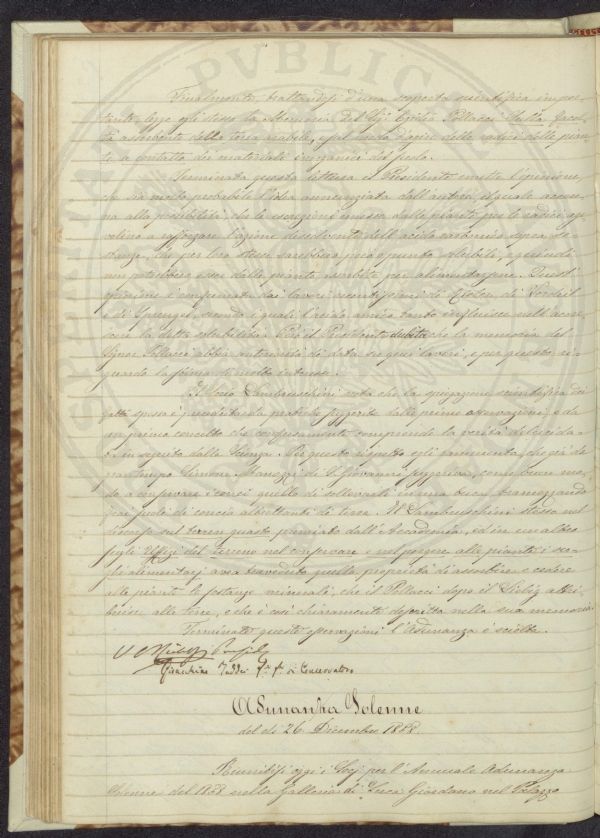 Finalmente, trattandosi d'una scoperta scientifica impor-
tante, legge egli stesso la Memoria del Sig. Egidio Pollacci sulla facol-
tà assorbente della terra arabile, e sul modo d'agire delle radici delle pian-
te a contatto dei materiali inorganici del suolo.
Terminata questa lettura il Presidente emette l'opinione,
che sia molto probabile l'idea annunziata dall'autore, il quale accen-
na alla possibilità, che le escrezioni emesse dalle piante per le radici, e-
volino a rafforzare l'azione dissolvente dell'acido carbonico sopra so-
stanze, che per loro stesse sarebbero poco appunto solubili, e quindi
non potrebbero esser dalle piante assorbite per alimentarsene. Quest'
opinione è confermata dai lavori recentissimi di
e di Sprengel, secondo i quali l'acido umico tanto influisce nell'accre-
scere la detta solubilità. Però il Presidente dubita che la memoria del
Signor Pollacci abbia anteriorità di data su quei lavori, e per questo ri-
guardo la stima di molto interesse.
Il Socio Lambruschini nota che la spiegazione scientifica dei
fatti spesso è preceduta da pratiche suggerite dalle prime osservazioni, e da
un primo concetto che confusamente comprende la verità dilucida-
ta in seguito dalla Scienza. Per questo rispetto egli rammenta che già da
gran tempo Simone Manozzi di S. Giovanni suggeriva, come buon me-
do a conservare i conci quello di sotterrarli in una buca, tramezzando
ogni suolo di concio altrettanto di terra. Il Lambruschini stesso nel
discorso sul terren guasto premiato dall'Accademia, ed in un altro
sugli Uffizi del terreno nel conservare e nel porgere alle piante i su-
ghi alimentari avea traveduto quella proprietà di assorbire e cedere
alle piante le sostanze minerali, che il Pollacci dopo il Liebig attri-
buisce alle terre, e che è così chiaramente descritta nella sua memoria.
Terminate queste osservazioni l'Adunanza è sciolta.
V. Ridolfi Presid.
Gioacchino Taddei f. f. di Conservatore
Adunanza Solenne
del dì 26 Dicembre 1858
Riunitisi oggi i Socj per l'Annuale Adunanza
Solenne del 1858 nella Galleria di Luca Giordano nel Palazzo